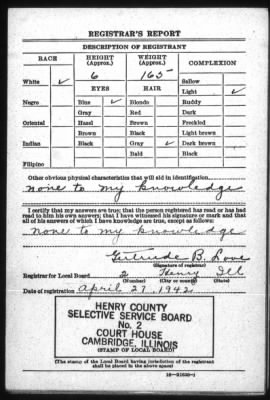 REGISTRAR'S REPORT
DESCRIPTION OF REGISTRANT
RACE HEIGHT (Approx.) WEIGHT (Approx.) COMPLEXION
White ✓ 6 165 Sallow
EYES HAIR Light ✓
Negro Blue ✓ Blonde Ruddy
Gray Red Dark
Oriental Hazel Brown Freckled
Brown Black Light brown
Indian Black Gray ✓ Dark brown
Bald Black
Filipino
Other obvious physical characteristics that will aid in identification
none to my knowledge
I certify that my answers are true; that the person registered has read or has had
read to him his own answers; that I have witnessed his signature or mark and that
all of his answers of which I have knowledge are true, except as follows:
none to my knowledge
Gertrude B. Love
(Signature of registrar)
Registrar for Local Board 2 Henry Ill
(Number) (City or county) (State)
Date of registration April 27, 1942
HENRY COUNTY
SELECTIVE SERVICE BOARD
No. 2
COURT HOUSE
CAMBRIDGE, ILLINOIS
(STAMP OF LOCAL BOARD)
(The stamp of the Local Board having jurisdiction of the registrant
shall be placed in the above space)
16-21630-1